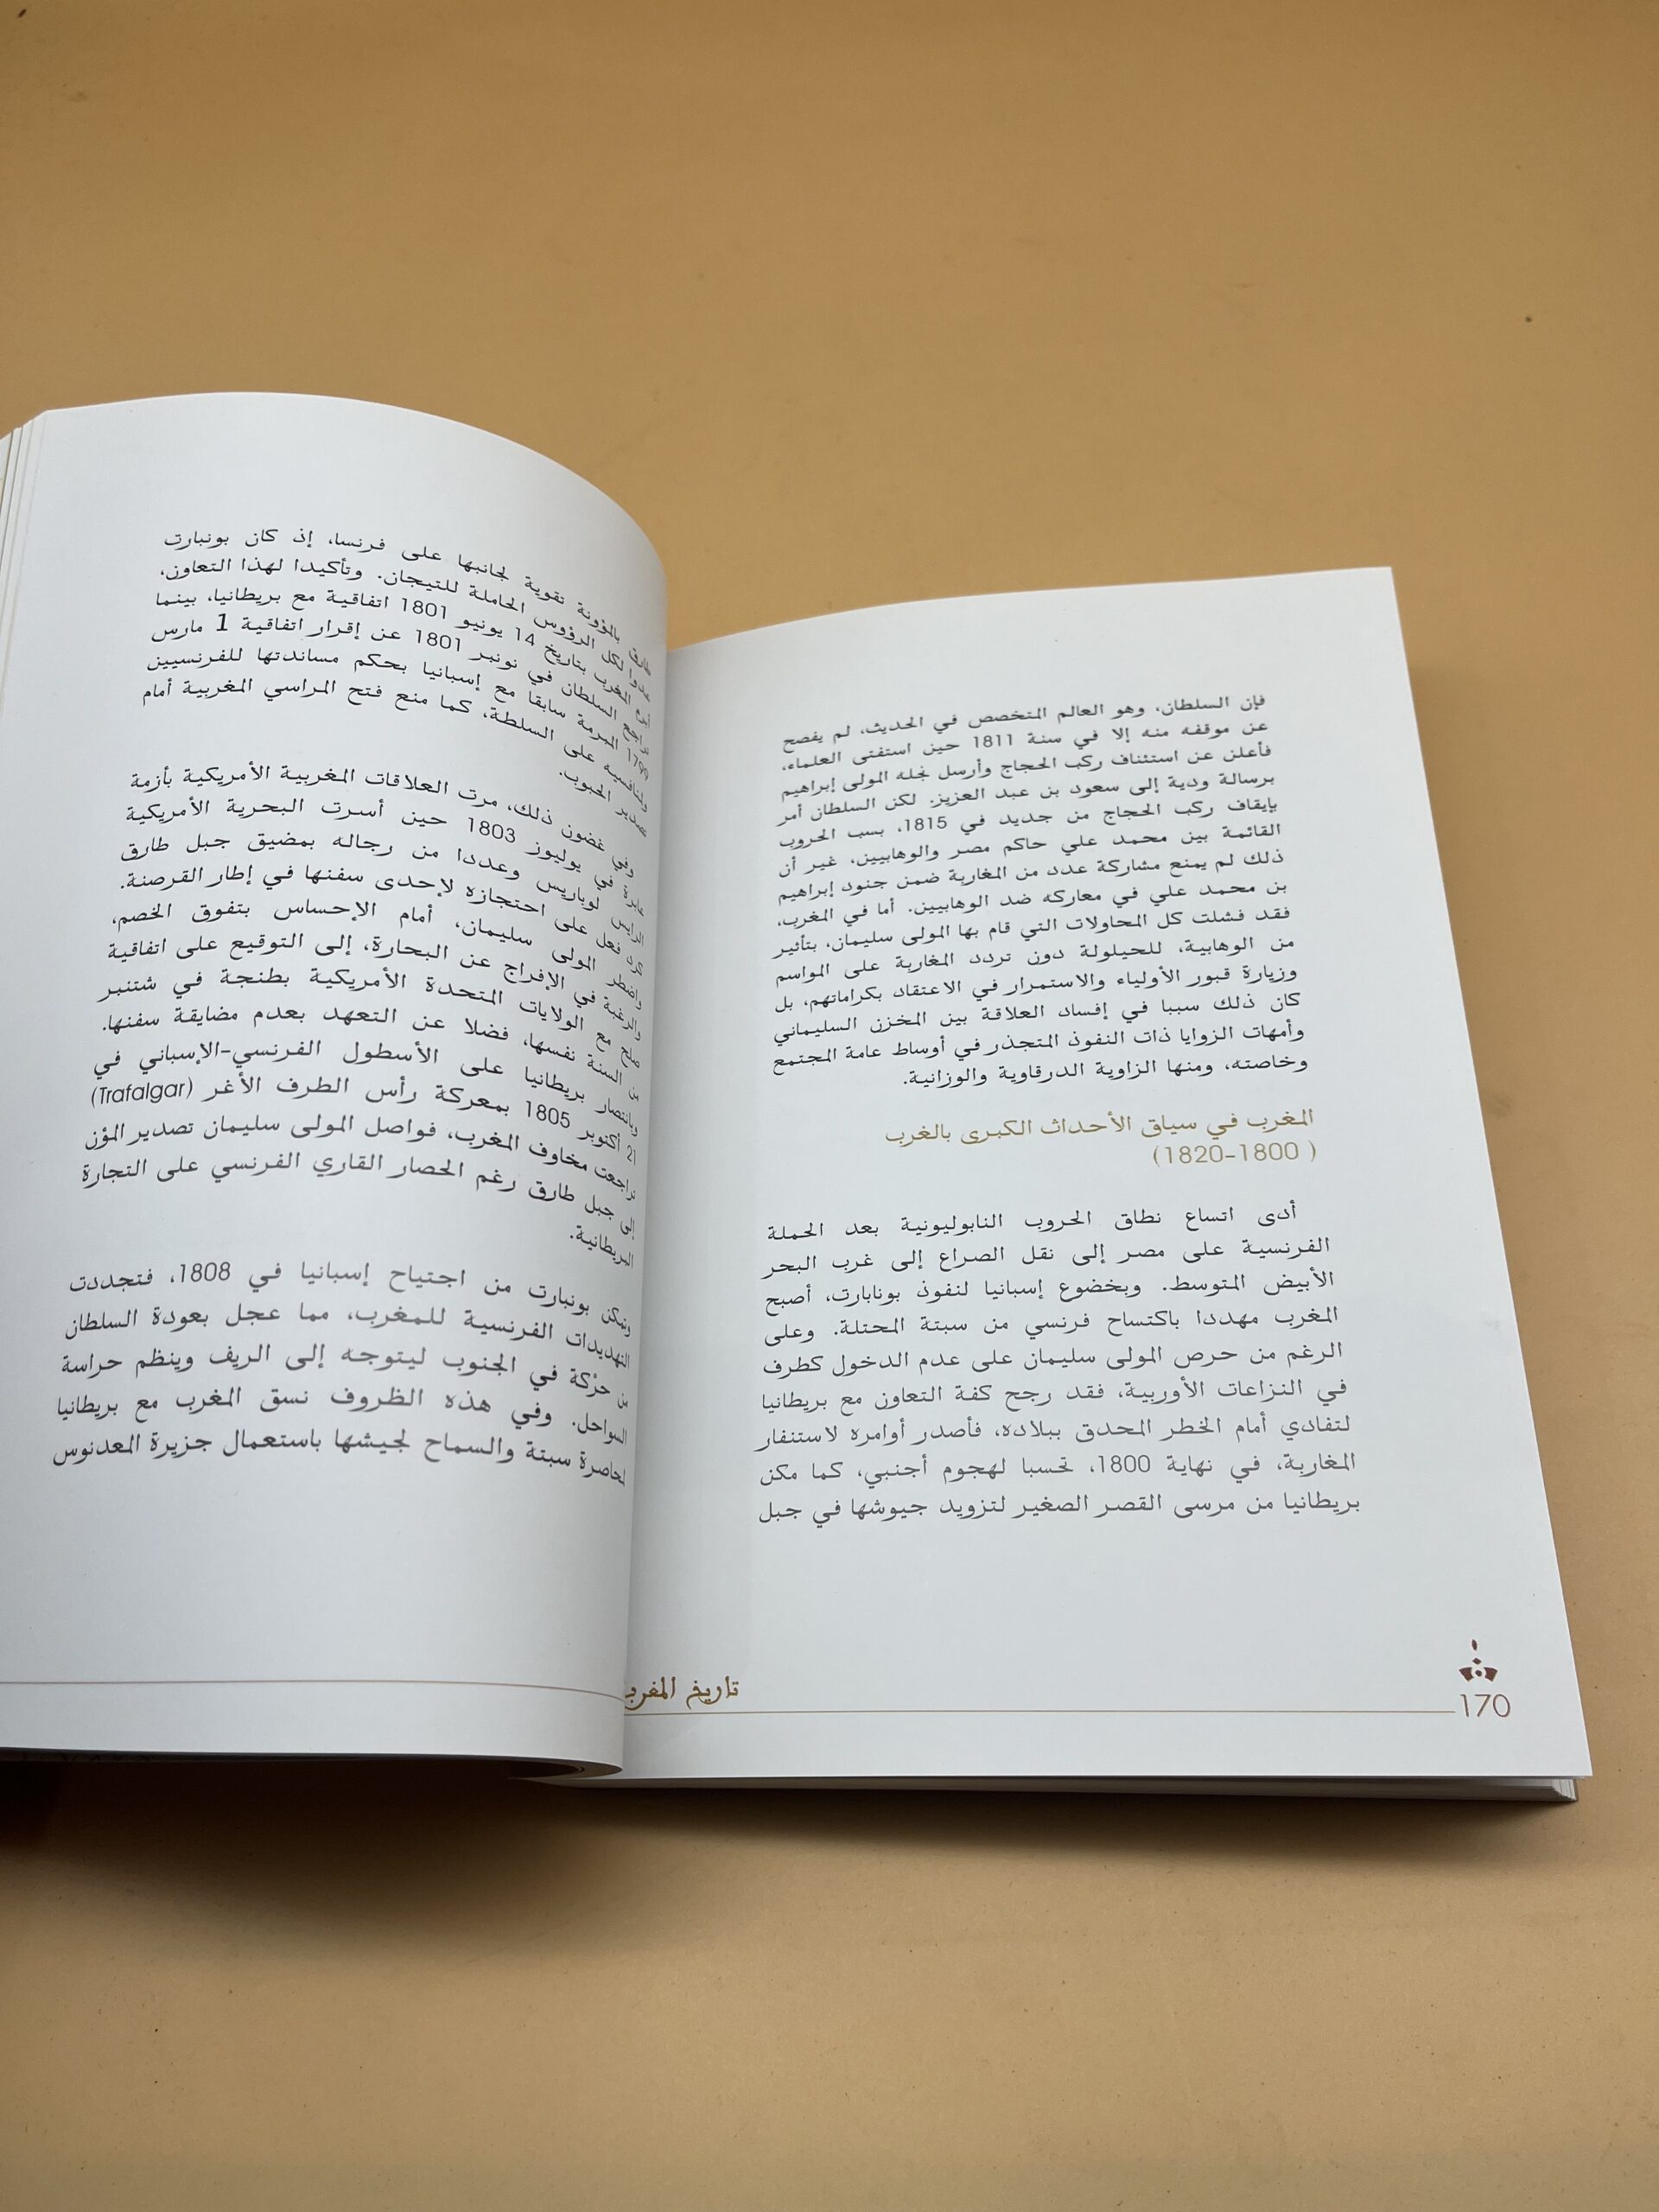 فإن السلطان، وهو العالم المتخصص في الحديث، لم يفصح
عن موقفه منه إلا في سنة 1811 حين استفتى العلماء،
فأعلن عن استئناف ركب الحجاج وأرسل نجله المولى إبراهيم
برسالة ودية إلى سعود بن عبد العزيز. لكن السلطان أمر
بإيقاف ركب الحجاج من جديد في 1815، بسب الحروب
القائمة بين محمد علي حاكم مصر والوهابيين، غير أن
ذلك لم يمنع مشاركة عدد من المغاربة ضمن جنود إبراهيم
بن محمد علي في معاركه ضد الوهابيين. أما في المغرب،
فقد فشلت كل المحاولات التي قام بها المولى سليمان، بتأثير
من الوهابية، للحيلولة دون تردد المغاربة على المواسم
وزيارة قبور الأولياء والاستمرار في الاعتقاد بكراماتهم، بل
كان ذلك سببا في إفساد العلاقة بين المخزن السليماني
وأمهات الزوايا ذات النفوذ المتجذر في أوساط عامة المجتمع
وخاصته، ومنها الزاوية الدرقاوية والوزانية.
المغرب في سياق الأحداث الكبرى بالغرب
( 1800-1820)
أدى اتساع نطاق الحروب النابوليونية بعد الحملة
الفرنسية على مصر إلى نقل الصراع إلى غرب البحر
الأبيض المتوسط. وبخضوع إسبانيا لنفوذ بونابارت، أصبح
المغرب مهددا باكتساح فرنسي من سبتة المحتلة. وعلى
الرغم من حرص المولى سليمان على عدم الدخول كطرف
في النزاعات الأوربية، فقد رجح كفة التعاون مع بريطانيا
لتفادي أمام الخطر المحدق ببلاده، فأصدر أوامره لاستنفار
المغاربة، في نهاية 1800، تحسبا لهجوم أجنبي، كما مكن
بريطانيا من مرسى القصر الصغير لتزويد جيوشها في جبل
170
تاريخ المغرب
طارق بالمؤونة تقوية لجانبها على فرنسا، إذ كان بونبارت
عدوا لكل الرؤوس الحاملة للتيجان. وتأكيدا لهذا التعاون،
أبرم المغرب بتاريخ 14 يونيو 1801 اتفاقية مع بريطانيا، بينما
تراجع السلطان في نونبر 1801 عن إقرار اتفاقية 1 مارس
1799 المبرمة سابقا مع إسبانيا بحكم مساندتها للفرنسيين
ولمنافسيه على السلطة، كما منع فتح المراسي المغربية أمام
تصدير الحبوب.
وفي غضون ذلك، مرت العلاقات المغربية الأمريكية بأزمة
عابرة في يوليوز 1803 حين أسرت البحرية الأمريكية
الرايس لوباريس وعددا من رجاله بمضيق جبل طارق
كرد فعل على احتجازه لإحدى سفنها في إطار القرصنة.
واضطر المولى سليمان، أمام الإحساس بتفوق الخصم،
والرغبة في الإفراج عن البحارة، إلى التوقيع على اتفاقية
صلح مع الولايات المتحدة الأمريكية بطنجة في شتنبر
من السنة نفسها، فضلا عن التعهد بعدم مضايقة سفنها.
وبانتصار بريطانيا على الأسطول الفرنسي-الإسباني في
21 أكتوبر 1805 بمعركة رأس الطرف الأغر (Trafalgar)
تراجعت مخاوف المغرب، فواصل المولى سليمان تصدير المؤن
إلى جبل طارق رغم الحصار القاري الفرنسي على التجارة
البريطانية.
وتمكن بونبارت من اجتياح إسبانيا في 1808، فتجددت
التهديدات الفرنسية للمغرب، مما عجل بعودة السلطان
من حرْكة في الجنوب ليتوجه إلى الريف وينظم حراسة
السواحل. وفي هذه الظروف نسق المغرب مع بريطانيا
لمحاصرة سبتة والسماح لجيشها باستعمال جزيرة المعدنوس